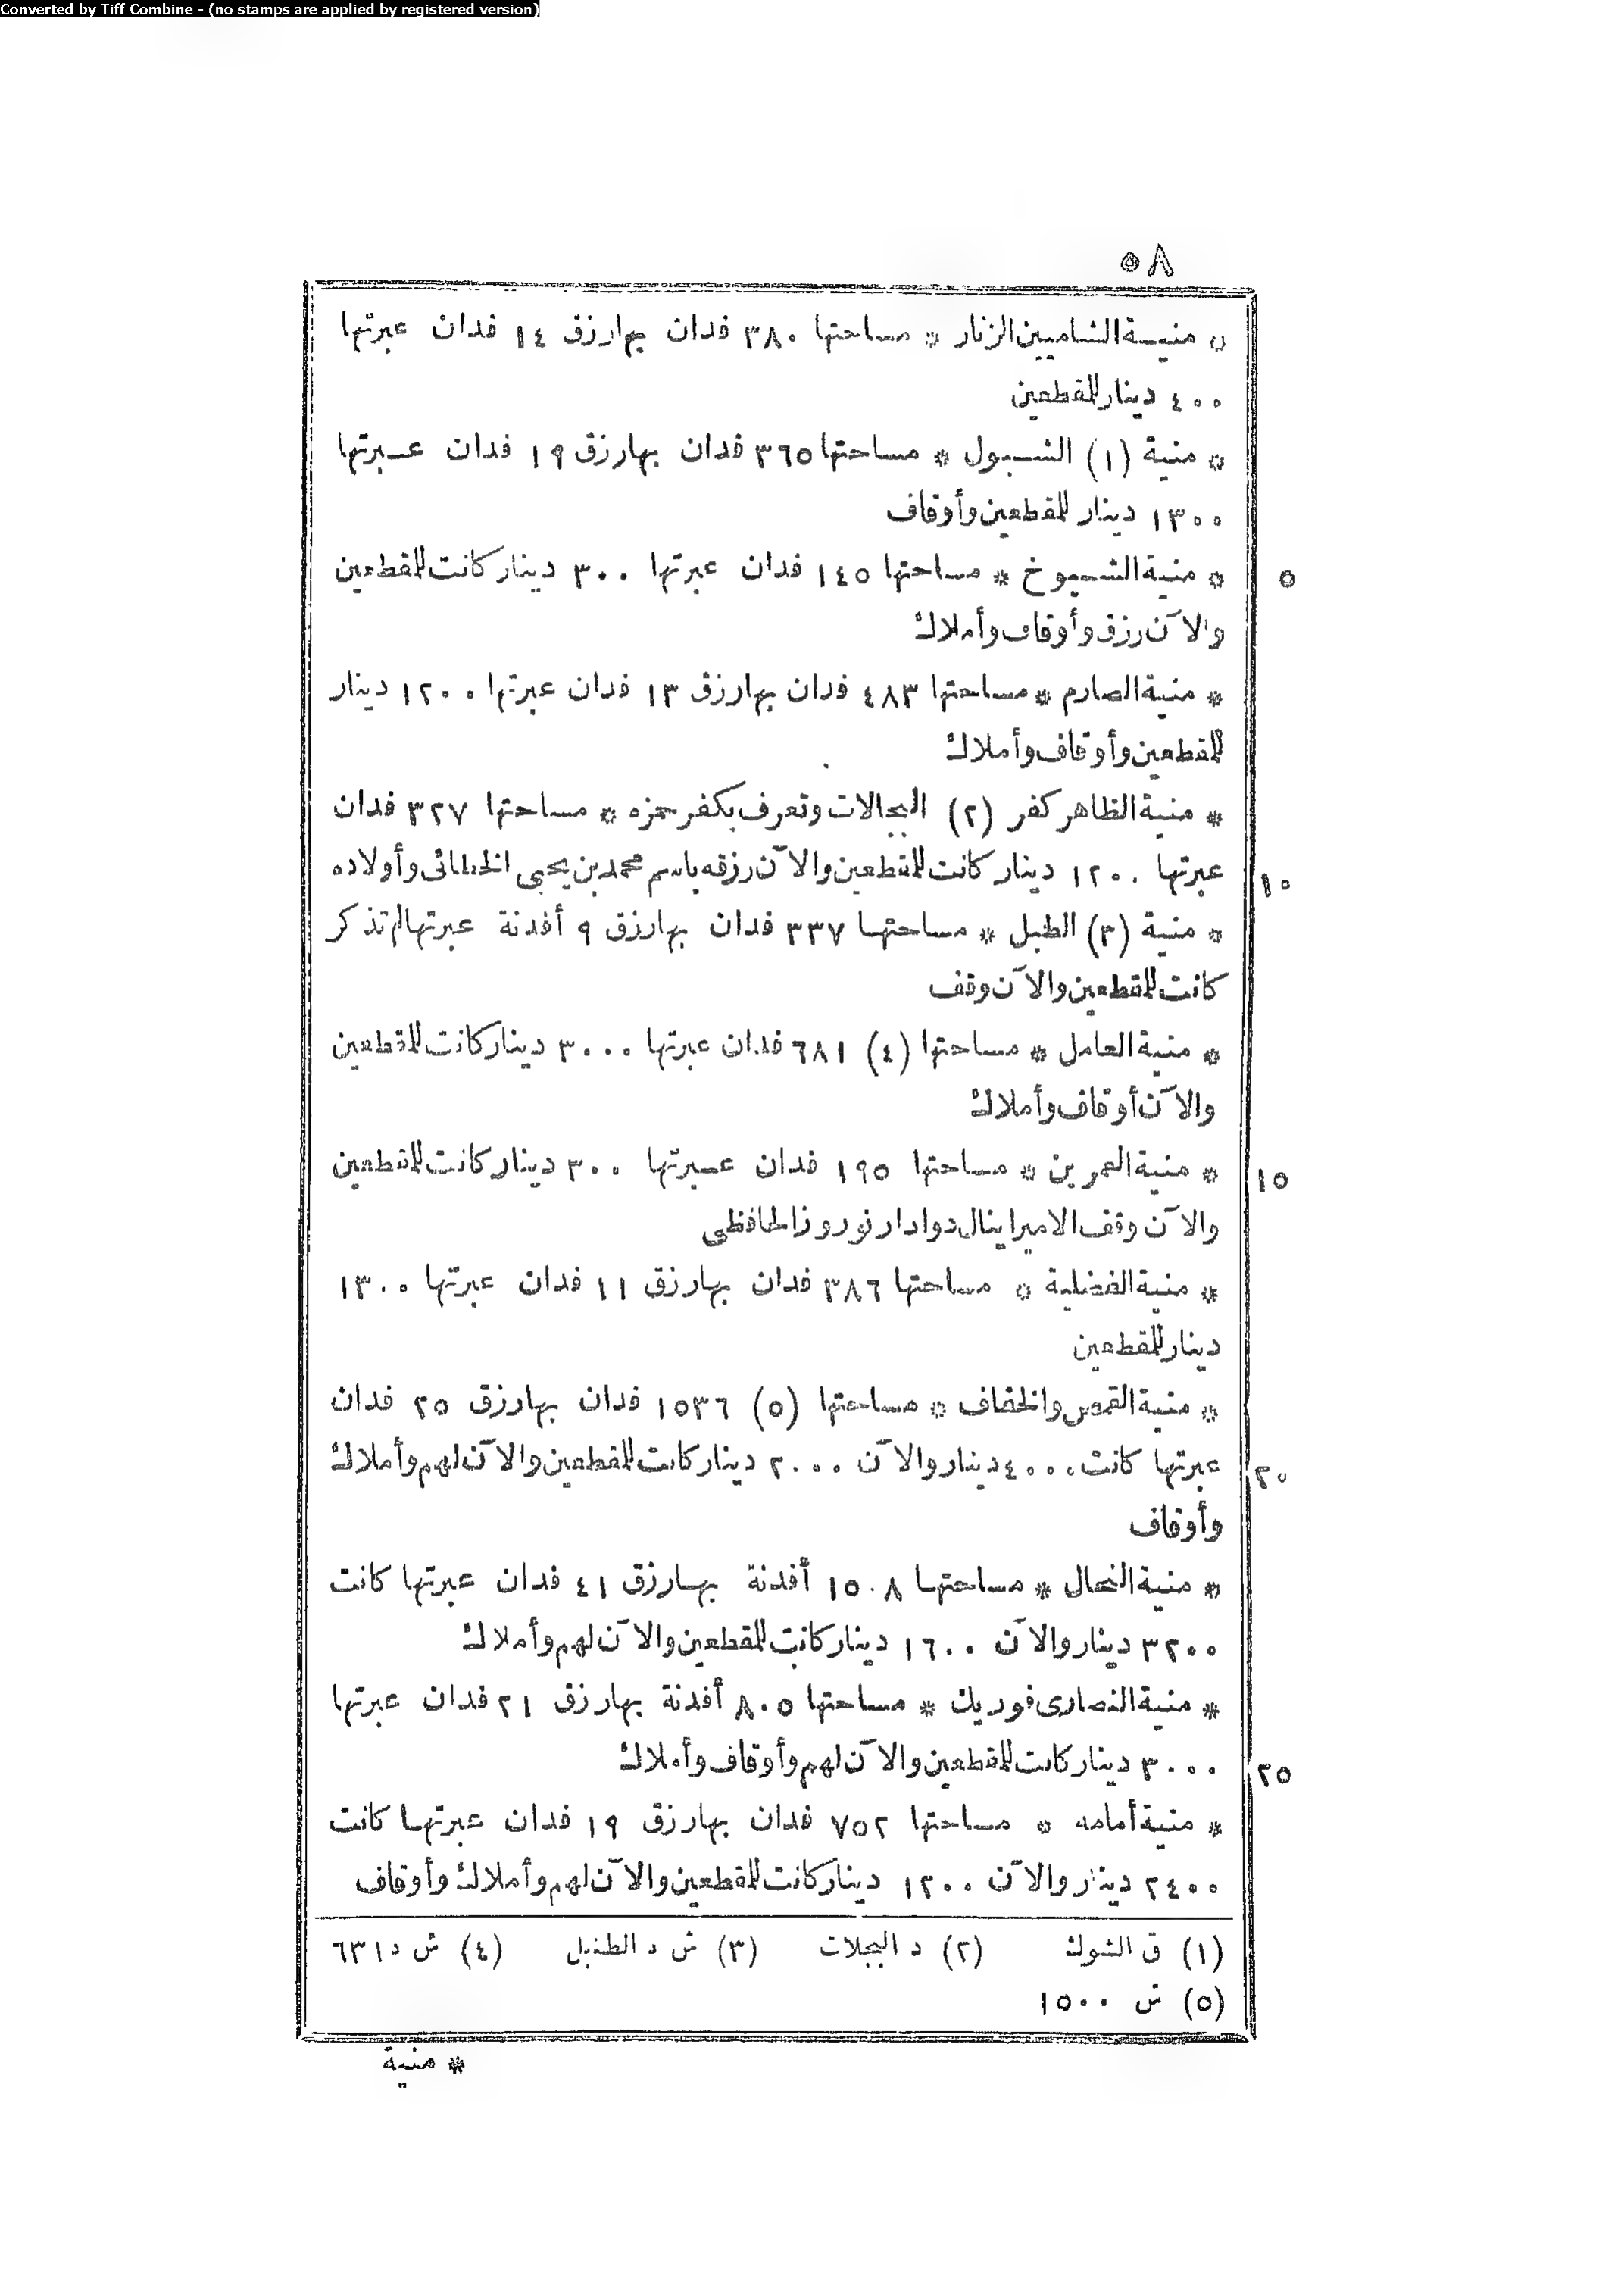 Converted by Tiff Combine - (no stamps are applied by registered version)
٥٨
* منيـة الشاميين الزنار * مساحتها ٣٨٠ فدان بها رزق ١٤ فدان عبرتها
٤٠٠ دينار للمقطعين
* منية (١) الشـبول * مساحتها ٣٦٥ فدان بها رزق ١٩ فدان عـبرتها
١٣٠٠ دينار للمقطعين وأوقاف
* منية الشـيوخ * مساحتها ١٤٥ فدان عبرتها ٣٠٠ دينار كانت للمقطعين
٥
والآن رزق وأوقاف وأملاك
* منية الصارم * مساحتها ٤٨٣ فدان بها رزق ١٣ فدان عبرتها ١٢٠٠ دينار
للمقطعين وأوقاف وأملاك
* منية الظاهر كفر (٢) البجالات وتعرف بكفر حمزه * مساحتها ٣٢٧ فدان
عبرتها ١٢٠٠ دينار كانت للمقطعين والآن رزقه باسم محمد بن يحيى الخطائى وأولاده
١٠
* منية (٣) الطبل * مساحتهـا ٣٣٧ فدان بها رزق ٩ أفدنة عبرتها لم تذكر
كانت للمقطعين والآن وقف
* منية العامل * مساحتها (٤) ٦٨١ فدان عبرتها ٣٠٠٠ دينار كانت للمقطعين
والآن أوقاف وأملاك
* منية العمرين * مساحتها ١٩٥ فدان عـبرتها ٣٠٠ دينار كانت للمقطعين
١٥
والآن وقف الامير اينال دوادار نوروز الحافظى
* منية الفضلية * مساحتها ٣٨٦ فدان بها رزق ١١ فدان عبرتها ١٣٠٠
دينار للمقطعين
* منية القمص والخفاف * مساحتها (٥) ١٥٣٦ فدان بها رزق ٢٥ فدان
عبرتها كانت ٤٠٠٠ دينار والآن ٢٠٠٠ دينار كانت للمقطعين والآن لهم وأملاك
٢٠
وأوقاف
* منية النحال * مساحتهـا ١٥٠٨ أفدنة بهـا رزق ٤١ فدان عبرتها كانت
٣٢٠٠ دينار والآن ١٦٠٠ دينار كانت للمقطعين والآن لهم وأملاك
* منية النصارى فوريك * مساحتها ٨٠٥ أفدنة بها رزق ٢١ فدان عبرتها
٣٠٠٠ دينار كانت للمقطعين والآن لهم وأوقاف وأملاك
٢٥
* منية أمامه * مساحتها ٧٥٢ فدان بها رزق ١٩ فدان عبرتهـا كانت
٢٤٠٠ دينار والآن ١٢٠٠ دينار كانت للمقطعين والآن لهم وأملاك وأوقاف
(١) ق الشوك (٢) د البجلات (٣) ش د الطنبل (٤) ش د ٦٣١
(٥) ش ١٥٠٠
* منية